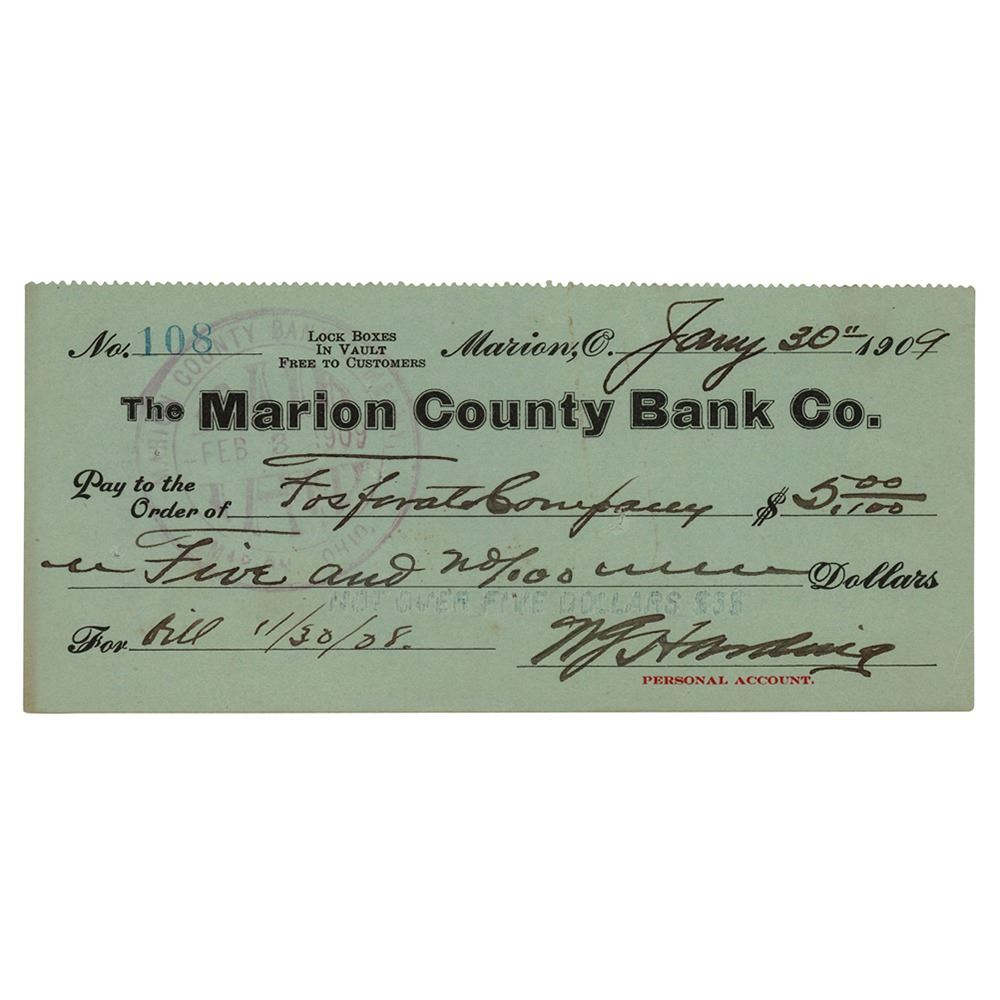 No. 108 LOCK BOXES IN VAULT FREE TO CUSTOMERS Marion, O. Jany 30" 1909
The Marion County Bank Co.
FEB 3 1909
Pay to the Order of Fosforato Company $ 5.00/100
Five and no/100 Dollars
NOT OVER FIVE DOLLARS $5$
For bill 11/30/08. WG Harding
PERSONAL ACCOUNT.